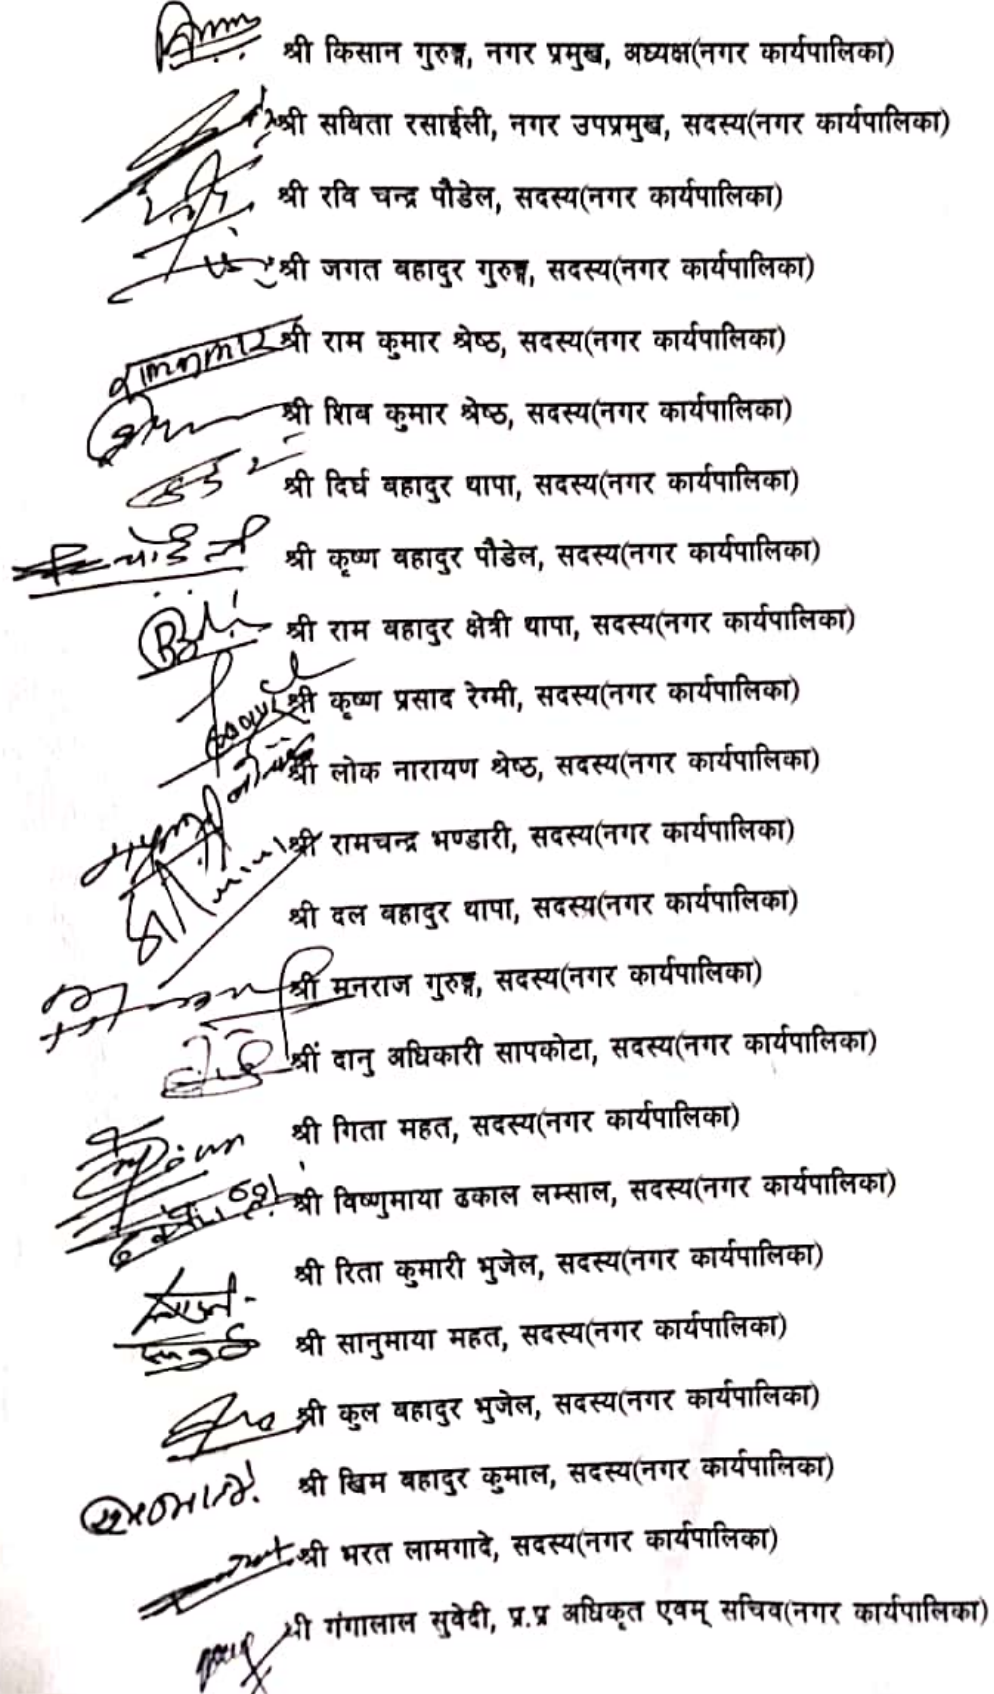 श्री किसान गुरुङ्ग, नगर प्रमुख, अध्यक्ष(नगर कार्यपालिका)
श्री सविता रसाईली, नगर उपप्रमुख, सदस्य(नगर कार्यपालिका)
श्री रवि चन्द्र पौडेल, सदस्य(नगर कार्यपालिका)
श्री जगत बहादुर गुरुङ्ग, सदस्य(नगर कार्यपालिका)
श्री राम कुमार श्रेष्ठ, सदस्य(नगर कार्यपालिका)
श्री शिव कुमार श्रेष्ठ, सदस्य(नगर कार्यपालिका)
श्री दिर्घ बहादुर थापा, सदस्य(नगर कार्यपालिका)
श्री कृष्ण बहादुर पौडेल, सदस्य(नगर कार्यपालिका)
श्री राम बहादुर क्षेत्री थापा, सदस्य(नगर कार्यपालिका)
श्री कृष्ण प्रसाद रेग्मी, सदस्य(नगर कार्यपालिका)
श्री लोक नारायण श्रेष्ठ, सदस्य(नगर कार्यपालिका)
श्री रामचन्द्र भण्डारी, सदस्य(नगर कार्यपालिका)
श्री दल बहादुर थापा, सदस्य(नगर कार्यपालिका)
श्री मनराज गुरुङ्ग, सदस्य(नगर कार्यपालिका)
श्रीं दानु अधिकारी सापकोटा, सदस्य(नगर कार्यपालिका)
श्री गिता महत, सदस्य(नगर कार्यपालिका)
श्री विष्णुमाया ढकाल लम्साल, सदस्य(नगर कार्यपालिका)
श्री रिता कुमारी भुजेल, सदस्य(नगर कार्यपालिका)
श्री सानुमाया महत, सदस्य(नगर कार्यपालिका)
श्री कुल बहादुर भुजेल, सदस्य(नगर कार्यपालिका)
श्री खिम बहादुर कुमाल, सदस्य(नगर कार्यपालिका)
श्री भरत लामगादे, सदस्य(नगर कार्यपालिका)
श्री गंगालाल सुवेदी, प्र.प्र अधिकृत एवम् सचिव(नगर कार्यपालिका)